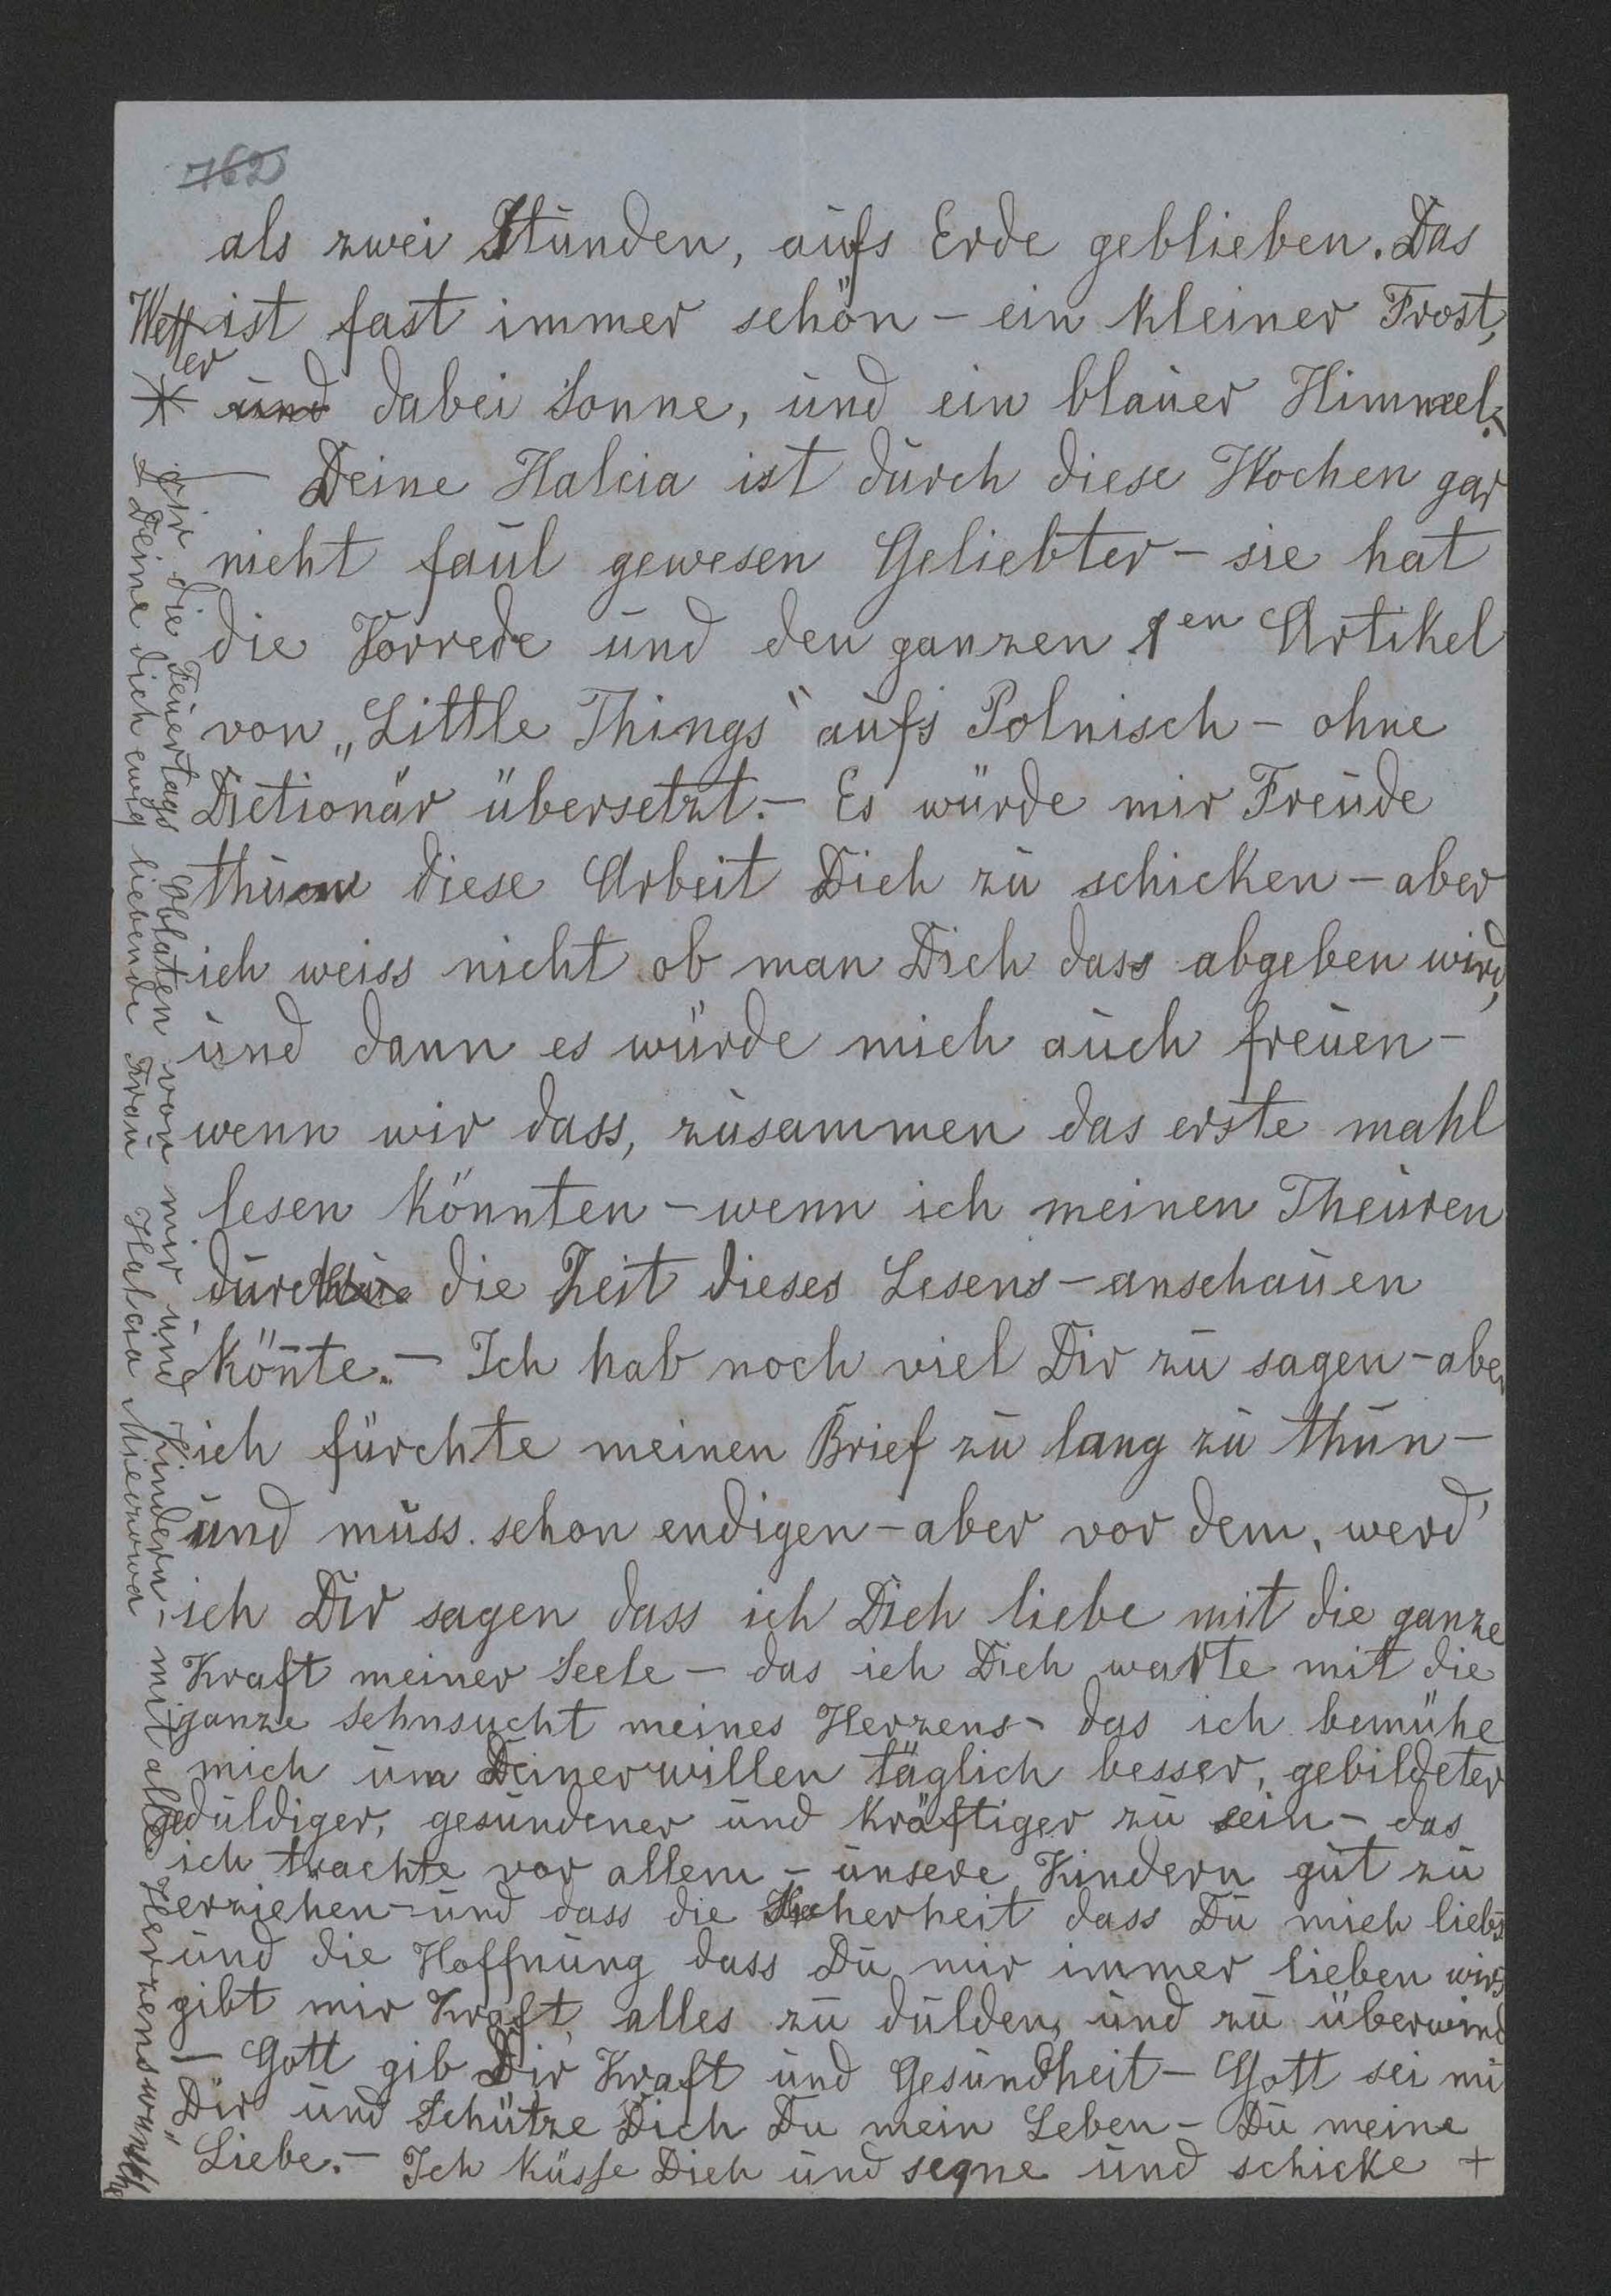 762
als zwei Stunden, aufs Erde geblieben. Das
Wetter ist fast immer schön – ein kleiner Frost,
und dabei Sonne, und ein blauer Himmel.–
– Deine Halcia ist durch diese Wochen gar
nicht faul gewesen Geliebter – sie hat
die Vorrede und den ganzen 1en Artikel
von „Little Things“ aufs Polnisch – ohne
Dictionär übersetzt. – Es würde mir Freude
thun diese Arbeit Dich zu schicken – aber
ich weiss nicht ob man Dich dass abgeben wird,
und dann es würde mich auch freuen –
wenn wir dass, zusammen das erste mahl
lesen könnten – wenn ich meinen Theuren
durch die Zeit dieses Lesens – anschauen
köñte. – Ich hab noch viel Dir zu sagen – aber
ich fürchte meinen Brief zu lang zu thun –
und muss schon endigen – aber vor dem, werd'
ich Dir sagen dass ich Dich liebe mit die ganze
Kraft meiner Seele – das ich Dich warte mit die
ganze Sehnsucht meines Herzens – das ich bemühe
mich um Deinerwillen täglich besser, gebildeter
geduldiger, gesundener und kräftiger zu sein – das
ich trachte vor allem – unsere Kindern gut zu
erziehen – und dass die Sicherheit dass Du mich liebs
und die Hoffnung dass Du mir immer lieben wirs
gibt mir Kraft alles zu dulden, und zu überwind
– Gott gib Dir Kraft und Gesundheit – Gott sei mi
Dir und Schütze Dich Du mein Leben – Du meine
Liebe. – Ich küsse Dich und segne und schicke +
+ Dir die Feuertags Oblaten von mir und Kindern – mit alle Herzenswünsche
Deine dich ewig liebende Frau Halcia Mierzowa